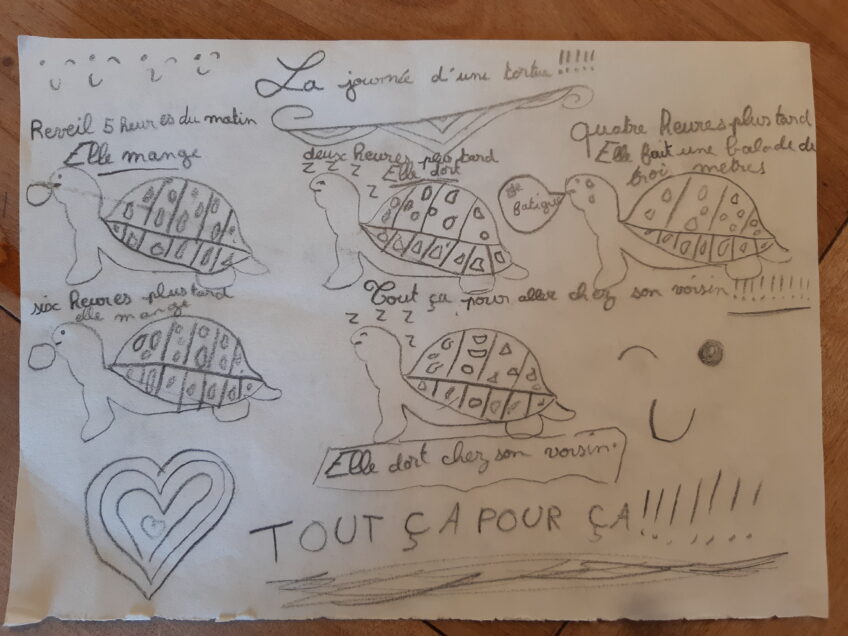 La journée d'une tortue !!!!!
Reveil 5 heures du matin
Elle mange
deux heures plus tard
Elle dort
z z z
z
quatre heures plus tard
Elle fait une balade de
troi metres
je
fatigue
six heures plus tard
elle mange
Tout ça pour aller chez son voisin !!!!!!!!!
z z z
z
Elle dort chez son voisin.
TOUT ÇA POUR ÇA !!!!!!!